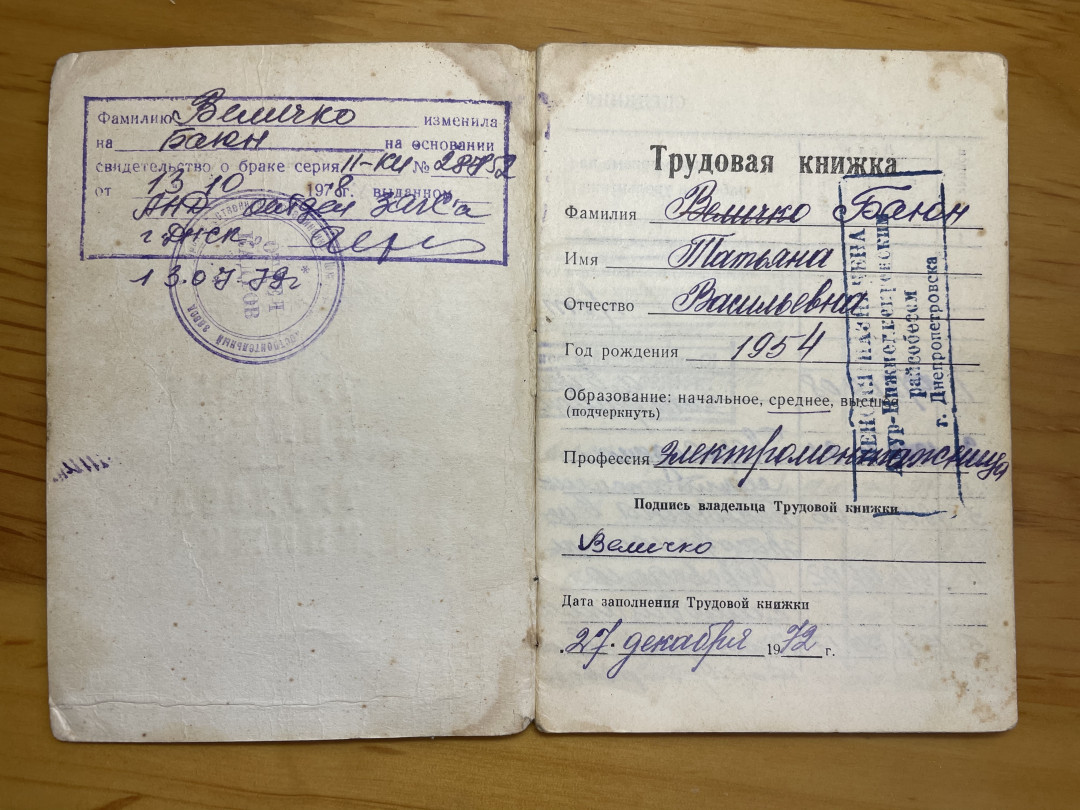 Фамилию Величко изменила
на Баюн на основании
свидетельство о браке серия II-КИ №
от 13.10 1978г. выданном
АНД отдел ЗАГС'а
г. Днск.
13.07.79г
ОТДЕЛ
КАДРОВ
Трудовая книжка
Фамилия Величко Баюн
Имя Татьяна
Отчество Васильевна
Год рождения 1954
Образование: начальное, среднее, высшее
(подчеркнуть)
Профессия электромонтажница
Подпись владельца Трудовой книжки
Величко
Дата заполнения Трудовой книжки
27. декабря 1972 г.
ПЕНСИЯ НАЗНАЧЕНА
Амур-Нижнеднепровским
райсобесом
г. Днепропетровска